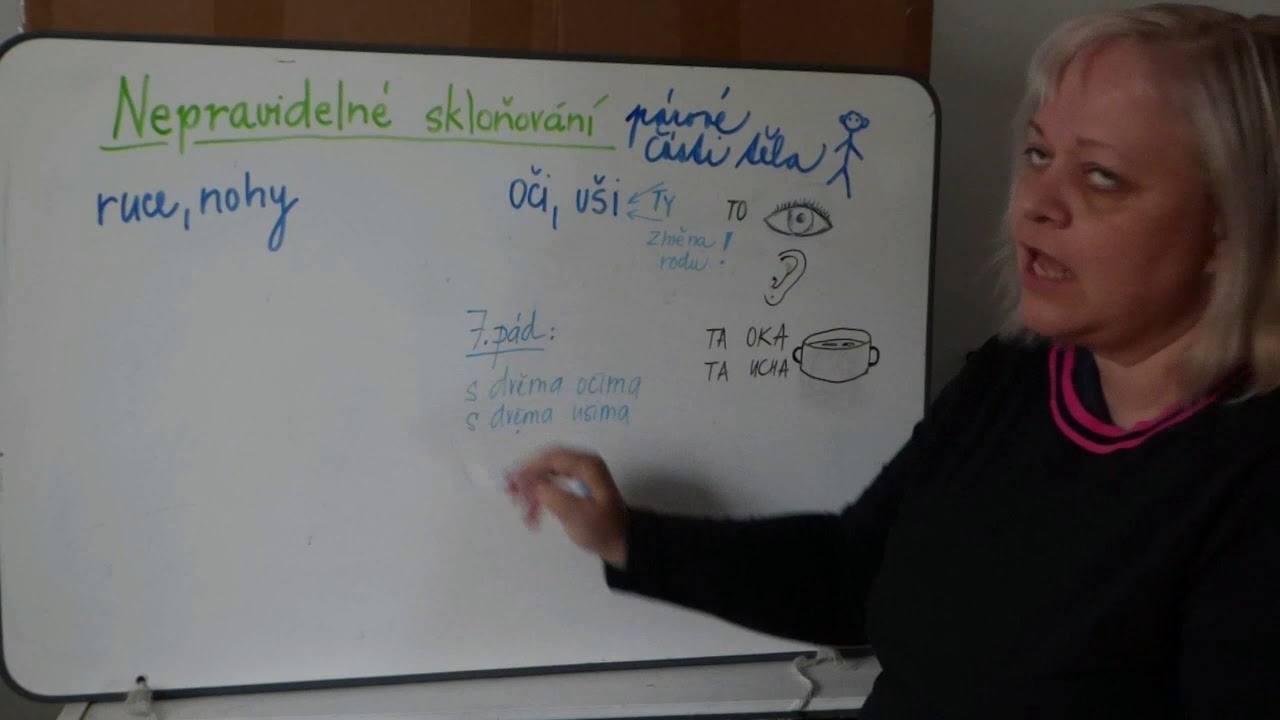 Nepravidelné skloňování párové
části těla
ruce, nohy
oči, uši
TY
změna !
rodu
TO
7. pád:
s dvěma očima
s dvěma ušima
TA OKA
TA UCHA